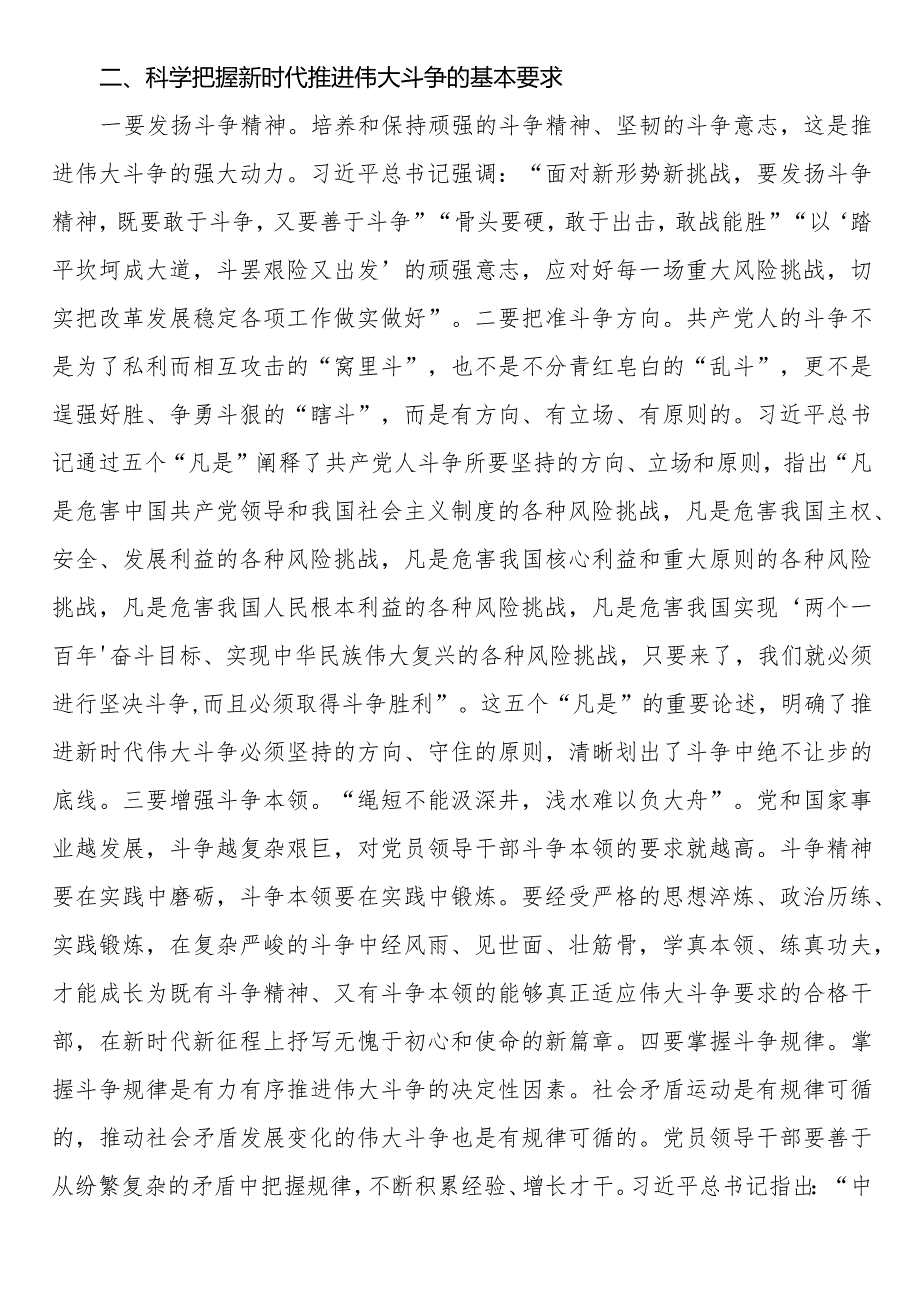 二、科学把握新时代推进伟大斗争的基本要求
一要发扬斗争精神。培养和保持顽强的斗争精神、坚韧的斗争意志，这是推
进伟大斗争的强大动力。习近平总书记强调：“面对新形势新挑战，要发扬斗争
精神，既要敢于斗争，又要善于斗争”“骨头要硬，敢于出击，敢战能胜”“以‘踏
平坎坷成大道，斗罢艰险又出发’的顽强意志，应对好每一场重大风险挑战，切
实把改革发展稳定各项工作做实做好”。二要把准斗争方向。共产党人的斗争不
是为了私利而相互攻击的“窝里斗”，也不是不分青红皂白的“乱斗”，更不是
逞强好胜、争勇斗狠的“瞎斗”，而是有方向、有立场、有原则的。习近平总书
记通过五个“凡是”阐释了共产党人斗争所要坚持的方向、立场和原则，指出“凡
是危害中国共产党领导和我国社会主义制度的各种风险挑战，凡是危害我国主权、
安全、发展利益的各种风险挑战，凡是危害我国核心利益和重大原则的各种风险
挑战，凡是危害我国人民根本利益的各种风险挑战，凡是危害我国实现‘两个一
百年'奋斗目标、实现中华民族伟大复兴的各种风险挑战，只要来了，我们就必须
进行坚决斗争,而且必须取得斗争胜利”。这五个“凡是”的重要论述，明确了推
进新时代伟大斗争必须坚持的方向、守住的原则，清晰划出了斗争中绝不让步的
底线。三要增强斗争本领。“绳短不能汲深井，浅水难以负大舟”。党和国家事
业越发展，斗争越复杂艰巨，对党员领导干部斗争本领的要求就越高。斗争精神
要在实践中磨砺，斗争本领要在实践中锻炼。要经受严格的思想淬炼、政治历练、
实践锻炼，在复杂严峻的斗争中经风雨、见世面、壮筋骨，学真本领、练真功夫，
才能成长为既有斗争精神、又有斗争本领的能够真正适应伟大斗争要求的合格干
部，在新时代新征程上抒写无愧于初心和使命的新篇章。四要掌握斗争规律。掌
握斗争规律是有力有序推进伟大斗争的决定性因素。社会矛盾运动是有规律可循
的，推动社会矛盾发展变化的伟大斗争也是有规律可循的。党员领导干部要善于
从纷繁复杂的矛盾中把握规律，不断积累经验、增长才干。习近平总书记指出：“中